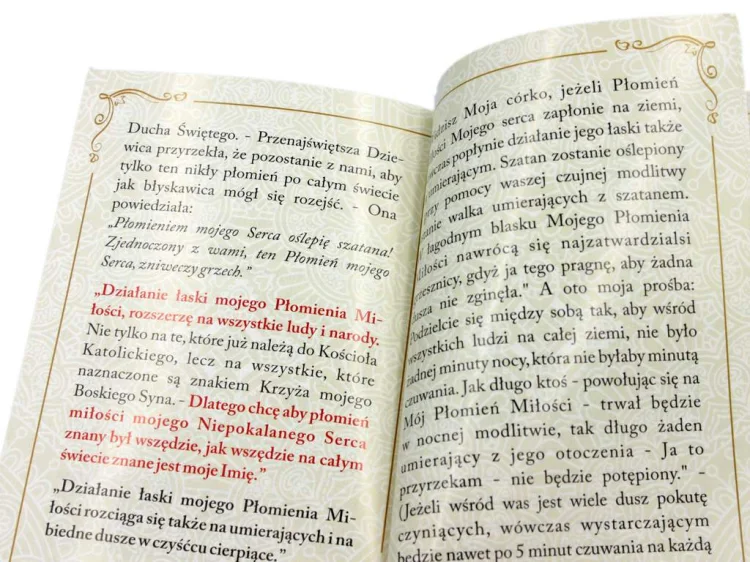 Ducha Świętego. - Przenajświętsza Dzie-
wica przyrzekła, że pozostanie z nami, aby
tylko ten nikły płomień po całym świecie
jak błyskawica mógł się rozejść. - Ona
powiedziała:
„Płomieniem mojego Serca oślepię szatana!
Zjednoczony z wami, ten Płomień mojego
Serca, zniweczy grzech."
„Działanie łaski mojego Płomienia Mi-
łości, rozszerzę na wszystkie ludy i narody.
Nie tylko na te, które już należą do Kościoła
Katolickiego, lecz na wszystkie, które
naznaczone są znakiem Krzyża mojego
Boskiego Syna. - Dlatego chcę aby płomień
miłości mojego Niepokalanego Serca
znany był wszędzie, jak wszędzie na całym
świecie znane jest moje Imię.”
„Działanie łaski mojego Płomienia Mi-
łości rozciąga się także na umierających i na
biedne dusze w czyśćcu cierpiące.”
Moja córko, jeżeli Płomień
Mojego serca zapłonie na ziemi,
popłynie działanie jego łaski także
Szatan zostanie oślepiony
pomocy waszej czujnej modlitwy
walka umierających z szatanem.
łagodnym blasku Mojego Płomienia
nawrócą się najzatwardzialsi
gdyż ja tego pragnę, aby żadna
nie zginęła." A oto moja prośba:
Podzielcie się między sobą tak, aby wśród
wszystkich ludzi na całej ziemi, nie było
żadnej minuty nocy, która nie byłaby minutą
czuwania. Jak długo ktoś - powołując się na
Mój Płomień Miłości - trwał będzie
w nocnej modlitwie, tak długo żaden
umierający z jego otoczenia - Ja to
przyrzekam - nie będzie potępiony." -
(Jeżeli wśród was jest wiele dusz pokutę
czyniących, wówczas wystarczającym
będzie nawet po 5 minut czuwania na każdą